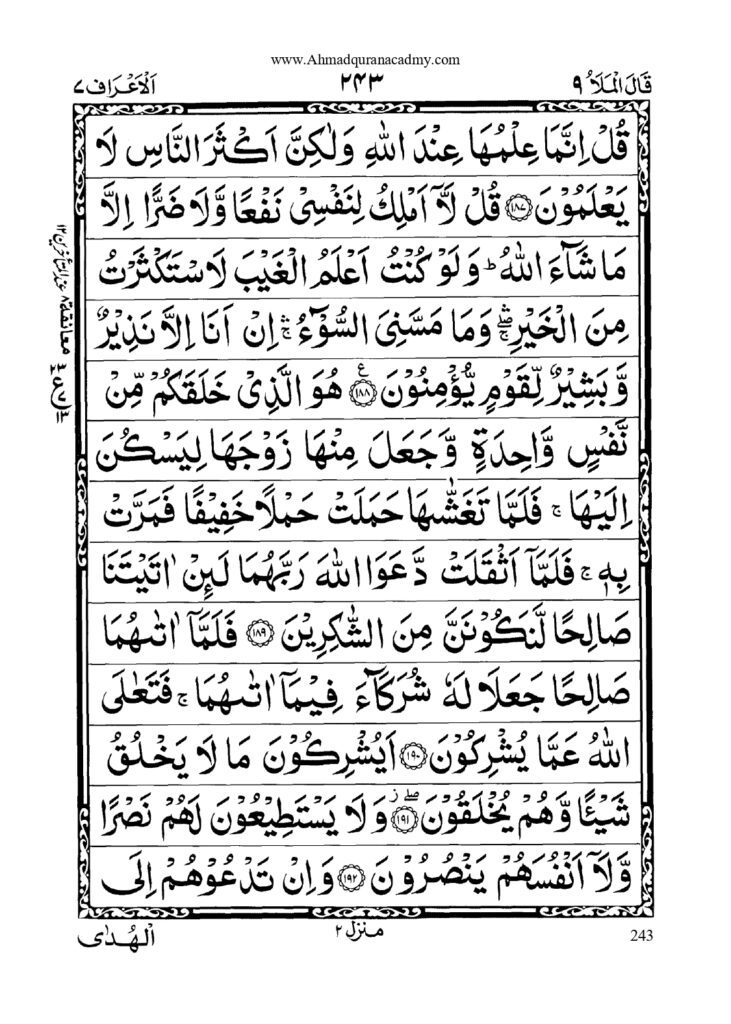 www.Ahmadquranacadmy.com
قَالَ الْمَلَاُ ۹ ۲۴۳ اَلْاَعْرَاف ۷
قُلْ اِنَّمَا عِلْمُهَا عِنْدَ اللّٰهِ وَلٰكِنَّ اَكْثَرَ النَّاسِ لَا
يَعْلَمُوْنَ ۝۱۸۷ قُلْ لَّاۤ اَمْلِكُ لِنَفْسِىْ نَفْعًا وَّلَا ضَرًّا اِلَّا
مَا شَآءَ اللّٰهُ ؕ وَلَوْ كُنْتُ اَعْلَمُ الْغَيْبَ لَاسْتَكْثَرْتُ
مِنَ الْخَيْرِ ۛۖۚ وَمَا مَسَّنِىَ السُّوْٓءُ ۛۚ اِنْ اَنَا اِلَّا نَذِيْرٌ
وَّبَشِيْرٌ لِّقَوْمٍ يُّؤْمِنُوْنَ ۝۱۸۸ ع هُوَ الَّذِىْ خَلَقَكُمْ مِّنْ
نَّفْسٍ وَّاحِدَةٍ وَّجَعَلَ مِنْهَا زَوْجَهَا لِيَسْكُنَ
اِلَيْهَا ۚ فَلَمَّا تَغَشّٰىهَا حَمَلَتْ حَمْلًا خَفِيْفًا فَمَرَّتْ
بِهٖ ۚ فَلَمَّاۤ اَثْقَلَتْ دَّعَوَا اللّٰهَ رَبَّهُمَا لَئِنْ اٰتَيْتَنَا
صَالِحًا لَّنَكُوْنَنَّ مِنَ الشّٰكِرِيْنَ ۝۱۸۹ فَلَمَّاۤ اٰتٰىهُمَا
صَالِحًا جَعَلَا لَهٗ شُرَكَآءَ فِيْمَاۤ اٰتٰىهُمَا ۚ فَتَعٰلَى
اللّٰهُ عَمَّا يُشْرِكُوْنَ ۝۱۹۰ اَيُشْرِكُوْنَ مَا لَا يَخْلُقُ
شَيْئًا وَّهُمْ يُخْلَقُوْنَ ۝۱۹۱ ۖز وَلَا يَسْتَطِيْعُوْنَ لَهُمْ نَصْرًا
وَّلَاۤ اَنْفُسَهُمْ يَنْصُرُوْنَ ۝۱۹۲ وَاِنْ تَدْعُوْهُمْ اِلَى
معانقة ۸ عند المتأخرين ۱۲
243 منزل ۲ الْهُدٰى